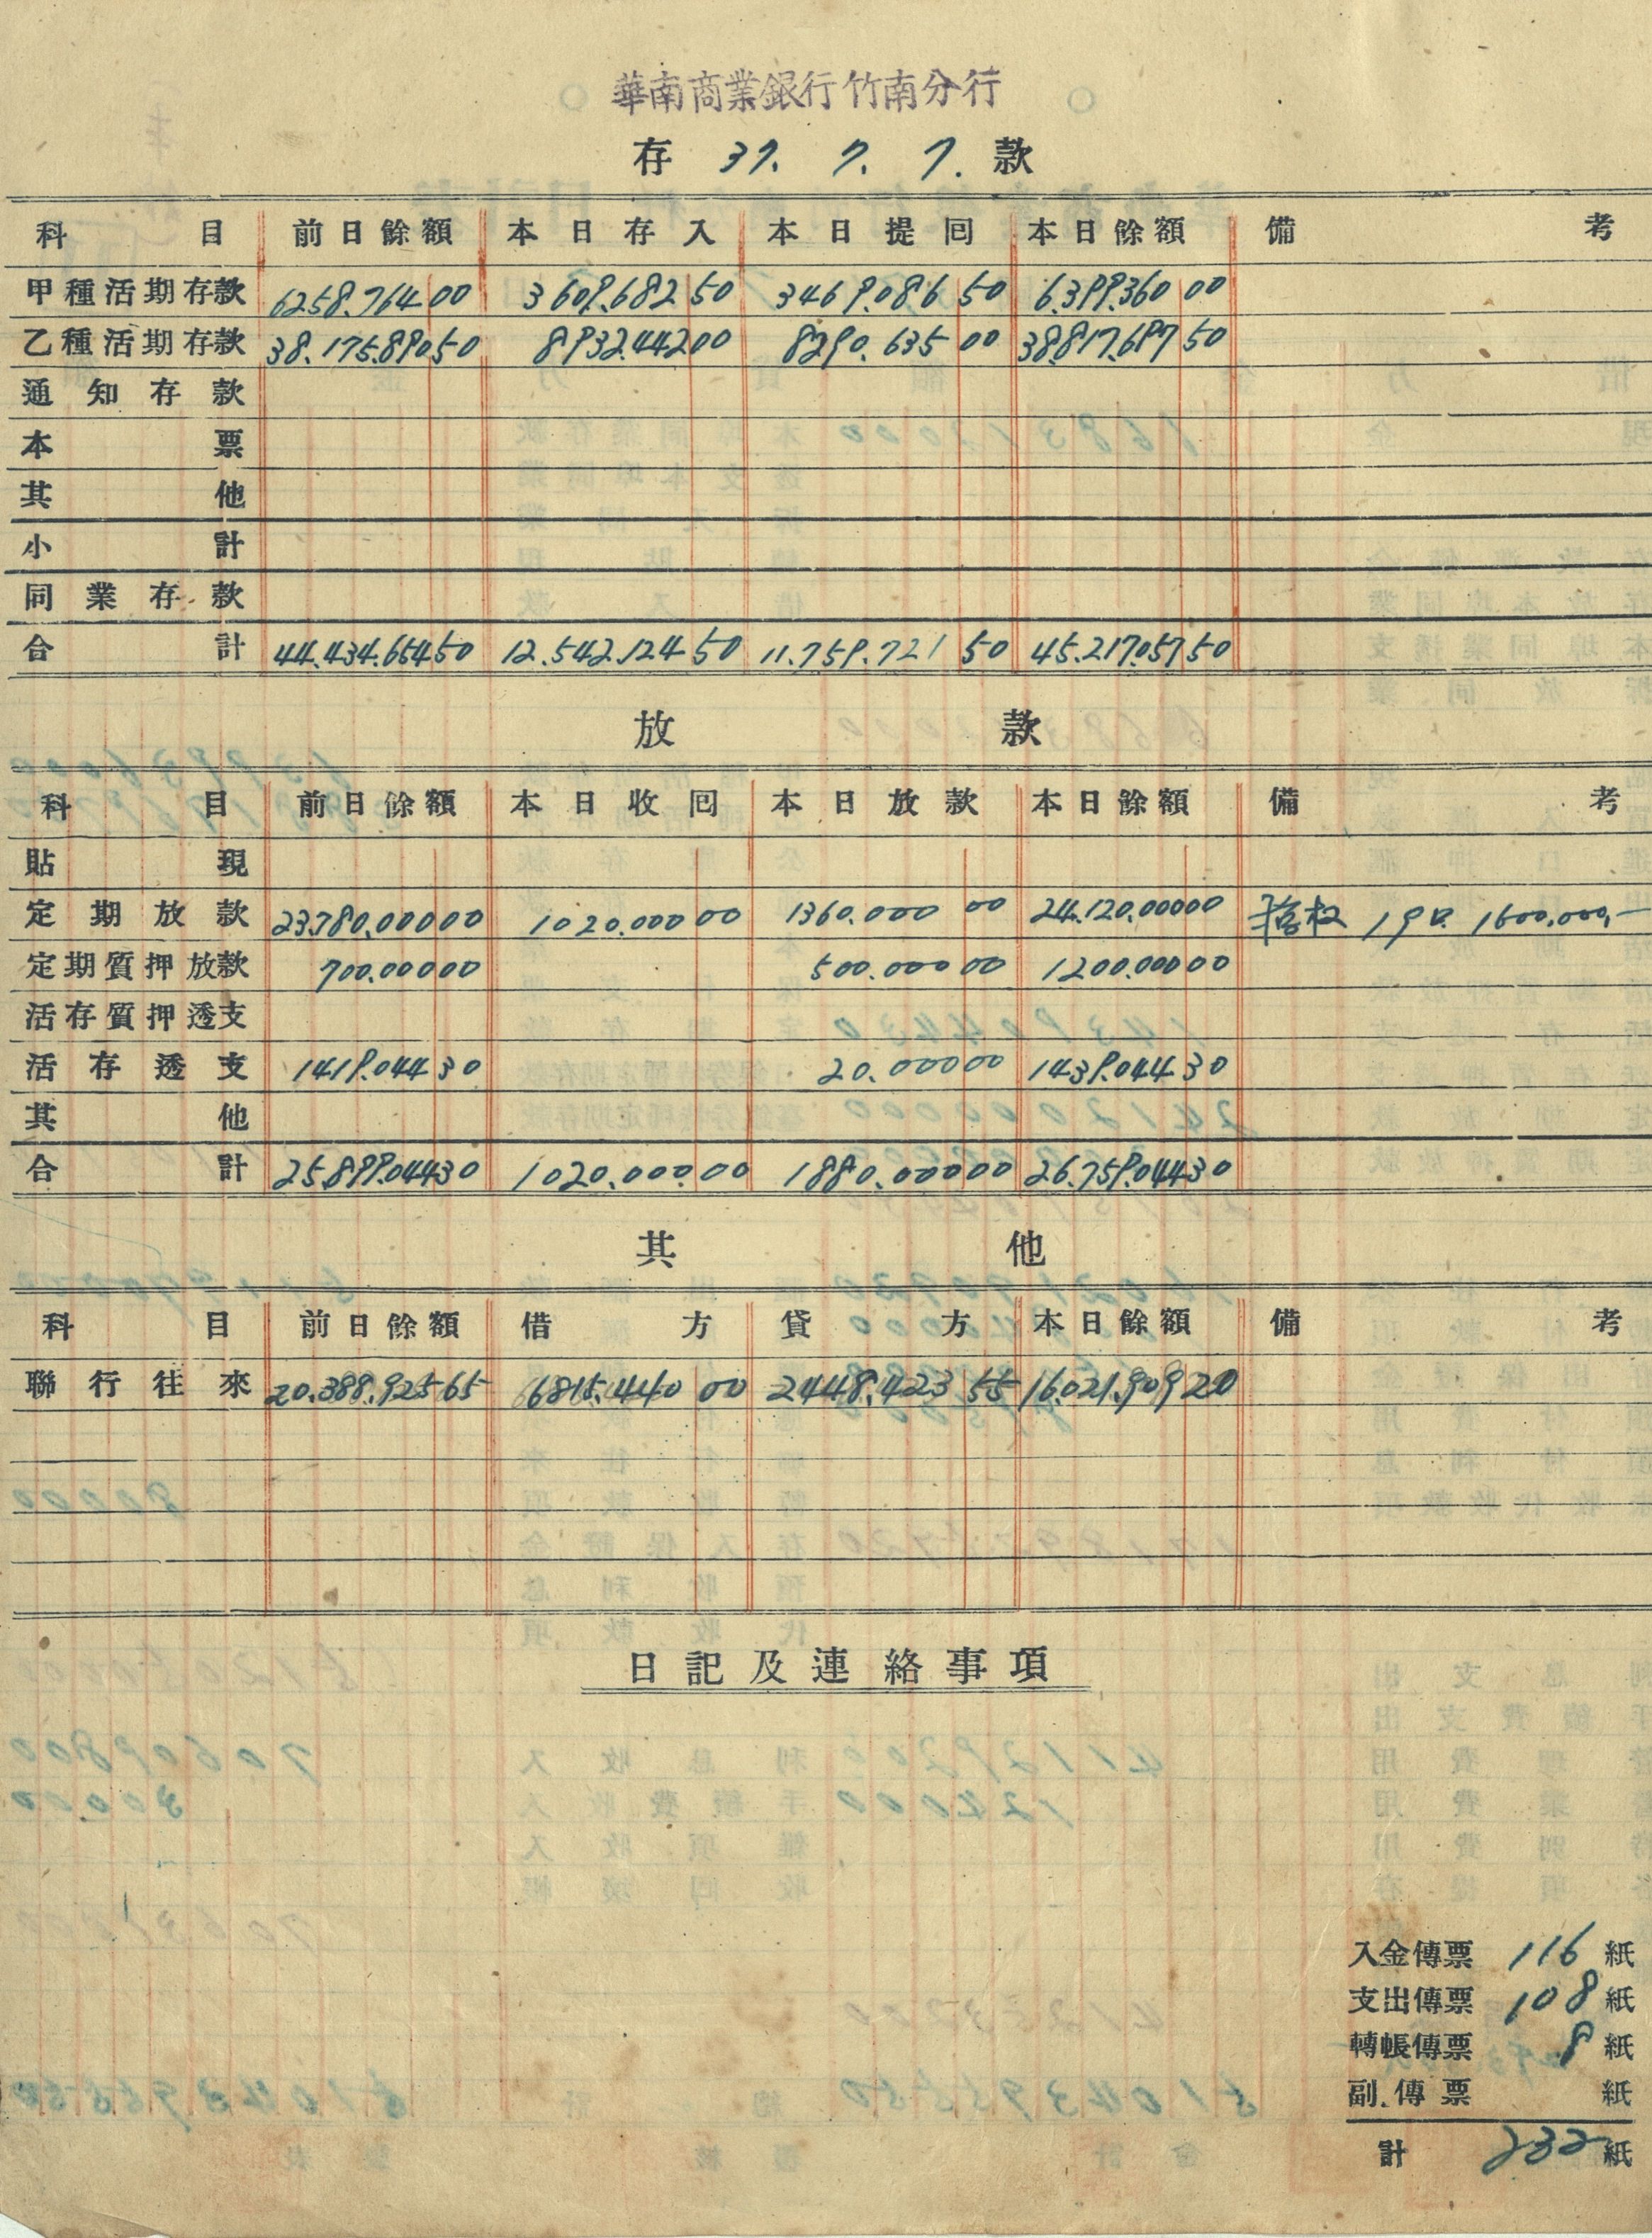 華南商業銀行竹南分行
存 37. 7. 7. 款
科目 前日餘額 本日存入 本日提囘 本日餘額 備考
甲種活期存款 6258.764 00 3609.682 50 3469.086 50 6.399.360 00
乙種活期存款 38.175.890 50 8932.442 00 8290.635 00 38.817.697 50
通知存款
本票
其他
小計
同業存款
合計 44.434.654 50 12.542.124 50 11.759.721 50 45.217.057 50
放款
科目 前日餘額 本日收囘 本日放款 本日餘額 備考
貼現
定期放款 23.780.000 00 1020.000 00 1360.000 00 24.120.000 00 19口 1600.000,—
定期質押放款 700.000 00 500.000 00 1200.000 00
活存質押透支
活存透支 1419.044 30 20.000 00 1439.044 30
其他
合計 25.899.044 30 1020.000.00 1880.000 00 26.759.044 30
其他
科目 前日餘額 借方 貸方 本日餘額 備考
聯行往來 20.388.925 65 6815.440 00 2448.423 55 16.021.909 20
日記及連絡事項
入金傳票 116 紙
支出傳票 108 紙
轉帳傳票 8 紙
副傳票 紙
計 232 紙